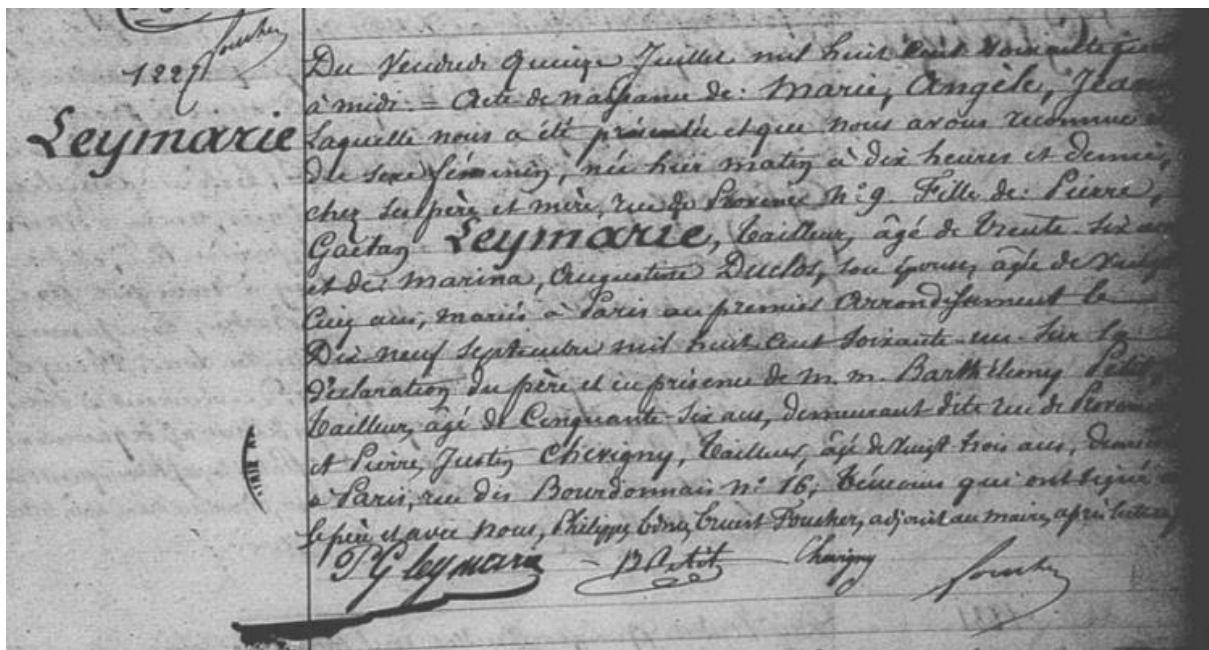 Foucher
1227
Leymarie
Du Vendredi Quinze Juillet mil huit cent soixante
à midi. = Acte de naissance de: Marie, Angèle,
Laquelle nous a été présentée et que nous avons reconnue
du sexe féminin, née hier matin à dix heures et demie,
chez ses père et mère, rue de Provence n.º 9. Fille de: Pierre,
Gaëtan Leymarie, tailleur, âgé de trente-six ans
et de Marina, Augustine Duclos, son épouse, âgée de vingt
cinq ans, mariés à Paris au premier arrondissement le
Dix neuf Septembre mil huit cent soixante-un. Sur la
déclaration du père et en présence de M. M. Barthélemy Petit,
tailleur, âgé de Cinquante-six ans, demeurant dite rue de Provence
et Pierre, Justin Chevigny, tailleur, âgé de vingt trois ans,
à Paris, rue des Bourdonnais n.º 16; témoins qui ont signé
le père et avec nous, Philippe Ernest Foucher, adjoint au maire, après lecture
P G leymarie B Petit Chevigny Foucher